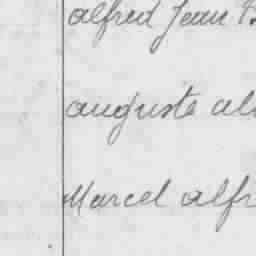 alfred Jean
auguste al
Marcel alfr